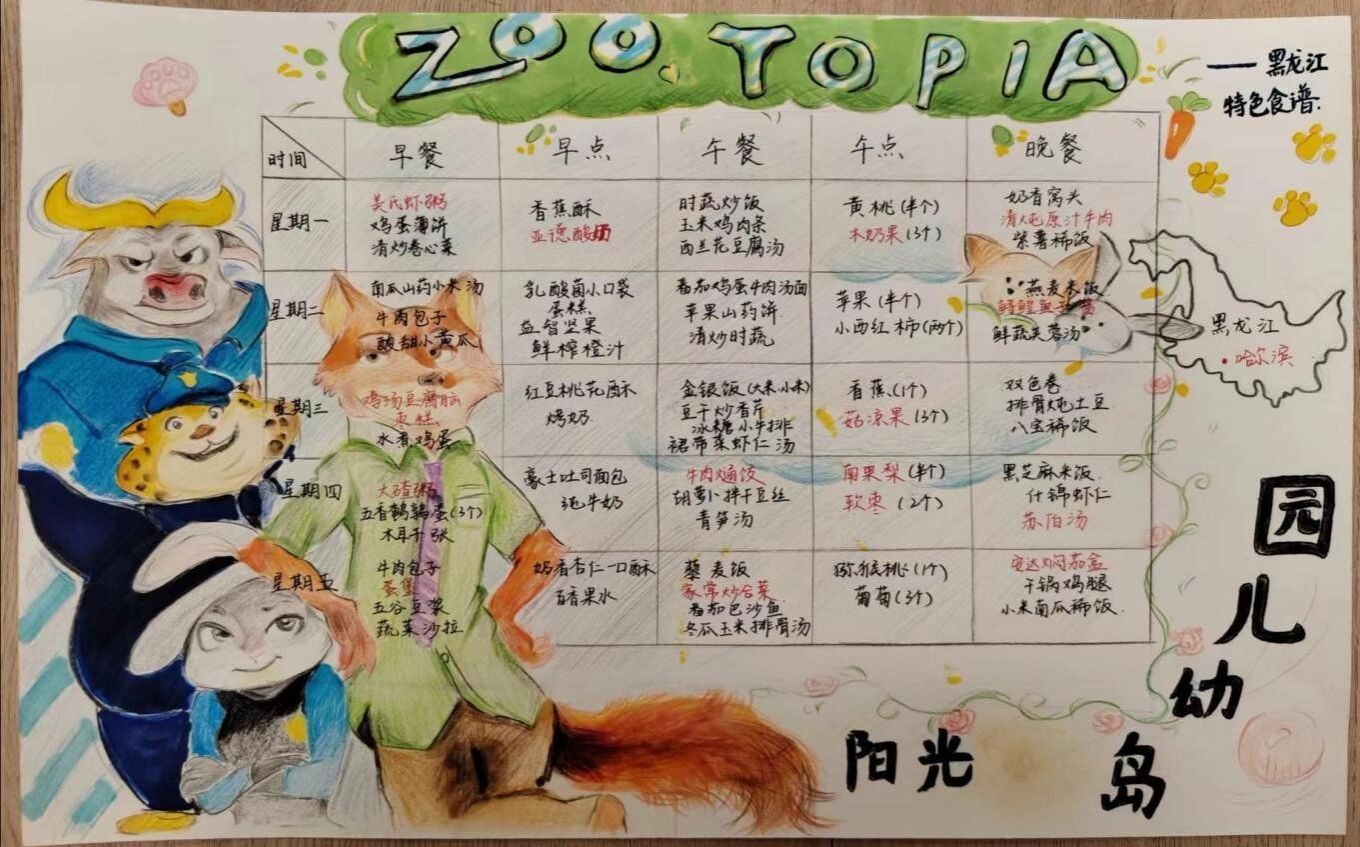 ZOOTOPIA
——黑龙江
特色食谱.
时间
早餐
早点
午餐
午点
晚餐
星期一
吴氏虾粥
鸡蛋薄饼
清炒卷心菜
香蕉酥
亚德酸奶
时蔬炒饭
玉米鸡肉条
西兰花豆腐汤
黄桃(半个)
木奶果(3个)
奶香窝头
清炖原汁牛肉
紫薯稀饭
星期二
南瓜山药小米汤
牛肉包子
酸甜小黄瓜
乳酸菌小口袋
蛋糕
益智坚果
鲜榨橙汁
番茄鸡蛋牛肉汤面
苹果山药饼
清炒时蔬
苹果(半个)
小西红柿(两个)
燕麦米饭
鲜蔬芙蓉汤
黑龙江
哈尔滨
星期三
鸡汤豆腐脑
枣糕
水煮鸡蛋
红豆桃花酥
烤奶
金银饭(大米.小米)
豆干炒香芹
冰糖小牛排
裙带菜虾仁汤
香蕉(1个)
菇凉果(3个)
双色卷
排骨炖土豆
八宝稀饭
星期四
大碴粥
五香鹌鹑蛋(3个)
木耳干张
豪士吐司面包
纯牛奶
牛肉焖饺
胡萝卜拌干豆丝
青笋汤
南果梨(半个)
软枣(2个)
黑芝麻米饭
什锦虾仁
苏伯汤
星期五
牛肉包子
蛋堡
五谷豆浆
蔬菜沙拉
奶香杏仁一口酥
百香果水
藜麦饭
家常炒合菜
番茄巴沙鱼
冬瓜玉米排骨汤
猕猴桃(1个)
葡萄(3个)
安达焖茄盒
干锅鸡腿
小米南瓜稀饭
阳光岛幼儿园